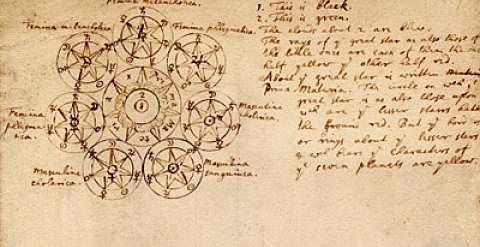 Femina melancholica.
Femina melancholica
Femina phlegmatica.
Femina
phlegma-
tica.
Masculina
cholerica.
Masculina
cholerica.
Masculina
sanguinea.
1. This is black.
2. This is green.
The clouds about 2 are blue.
The rays of yͤ great star as also those of
the little ones are each of them the one
half yellow yͤ other half red.
About yͤ great star is written
Prima Materia. The circle on wch yͤ
great star is as also those upon
wch are yͤ lesser stars have
the ground red. But yͤ
or rings about yͤ lesser stars
yͤ characters of
yͤ seven planets are yellow.